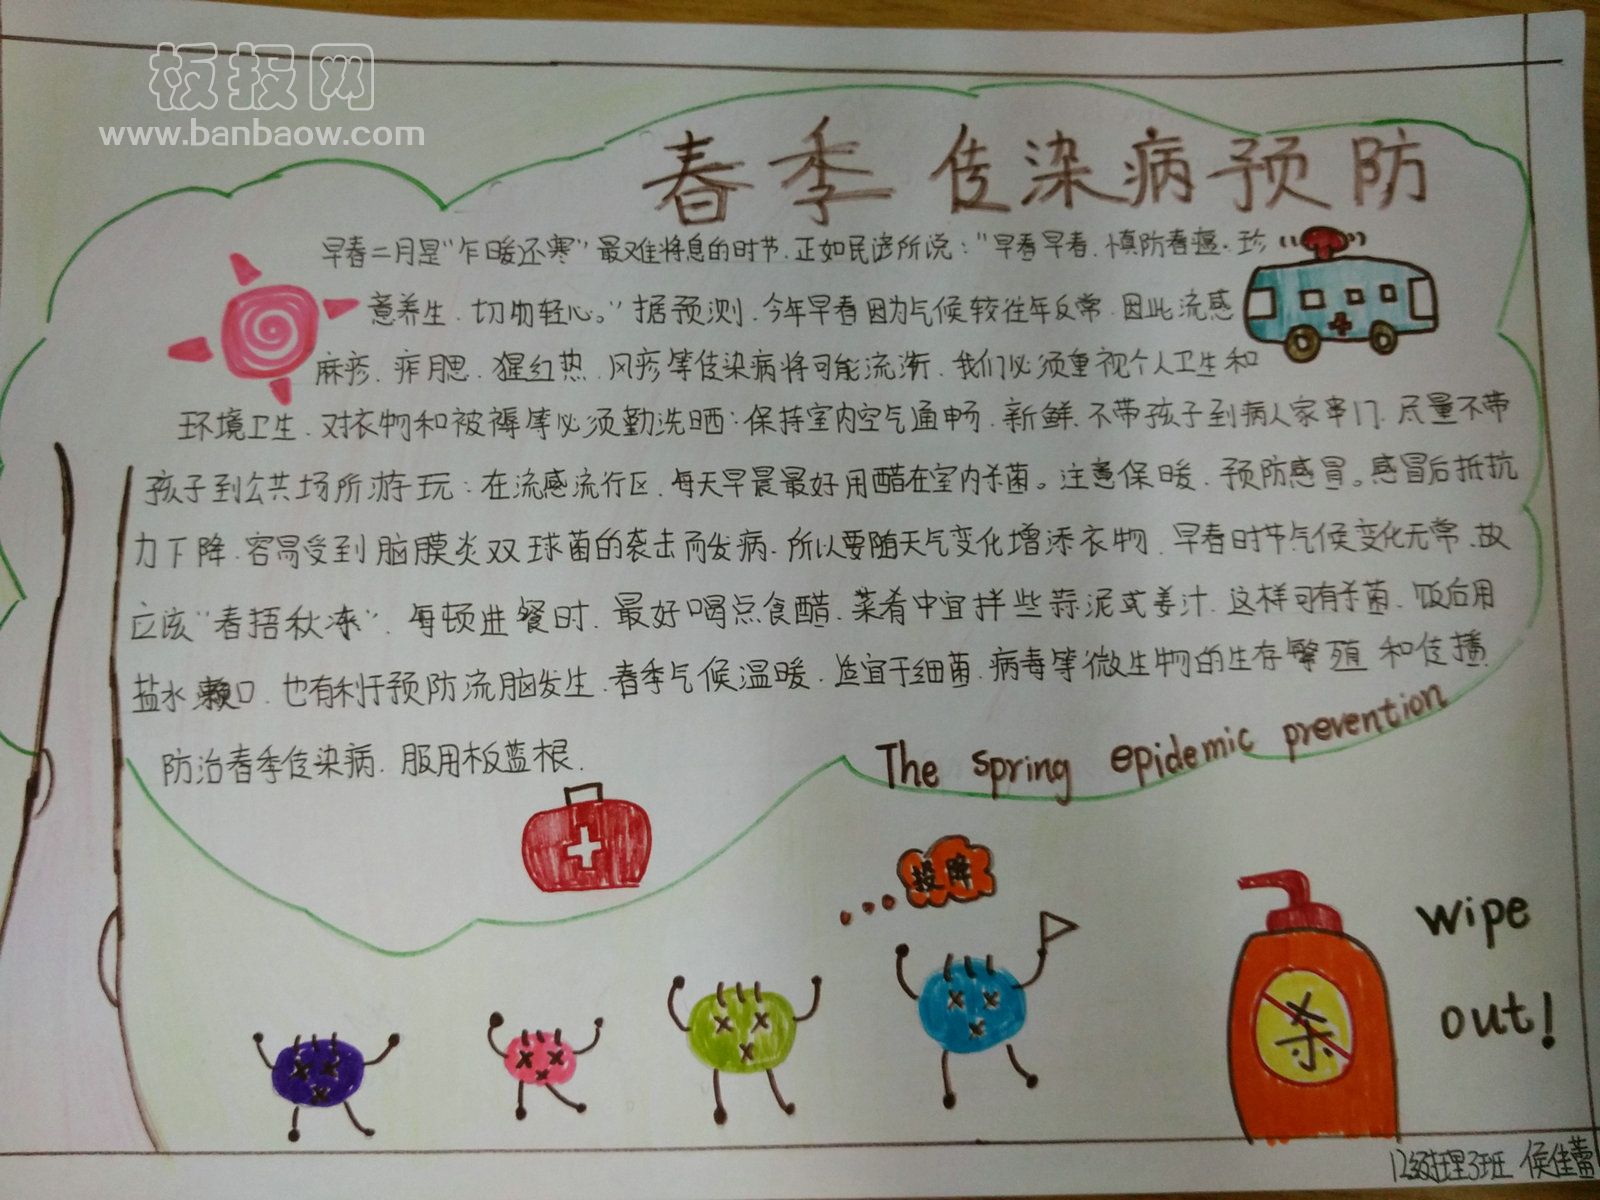 板报网
www.banbaow.com
春季传染病预防
早春二月是“乍暖还寒”最难将息的时节.正如民谚所说:“早春早春.慎防春瘟.珍
意养生.切勿轻心。”据预测.今年早春因为气候较往年反常.因此流感
麻疹.痄腮.猩红热.风疹等传染病将可能流行.我们必须重视个人卫生和
环境卫生.对衣物和被褥等必须勤洗晒:保持室内空气通畅.新鲜.不带孩子到病人家串门.尽量不带
孩子到公共场所游玩:在流感流行区.每天早晨最好用醋在室内杀菌。注意保暖.预防感冒。感冒后抵抗
力下降.容易受到脑膜炎双球菌的袭击而发病.所以要随天气变化增添衣物.早春时节气候变化无常.故
应该“春捂秋冻”.每顿进餐时.最好喝点食醋.菜肴中宜拌些蒜泥或姜汁.这样可有杀菌.饭后用
盐水漱口.也有利于预防流脑发生.春季气候温暖.适宜于细菌.病毒等微生物的生存繁殖和传播
防治春季传染病.服用板蓝根.
The spring epidemic prevention
投降
杀
wipe
out!
12级护理3班 侯佳蕾